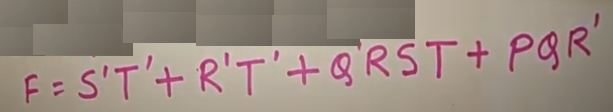 F = S'T' + R'T' + Q'RST + PQR'